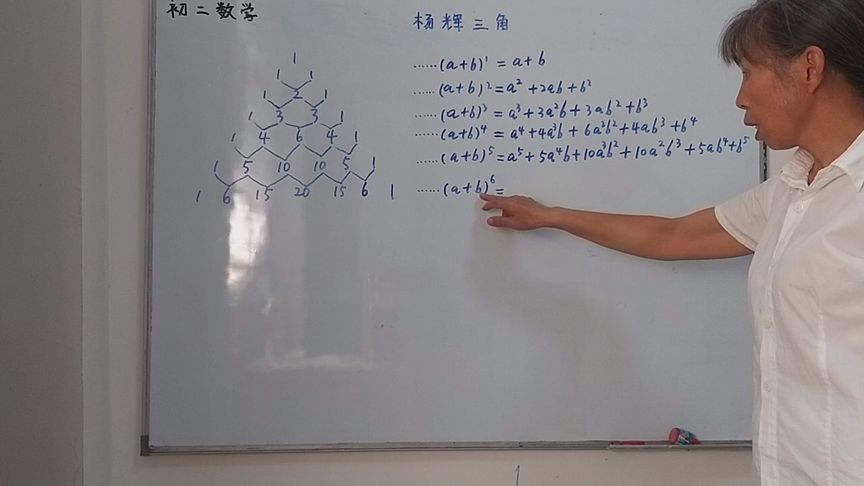 初二数学
杨辉三角
1
1 1
1 2 1
1 3 3 1
1 4 6 4 1
1 5 10 10 5 1
1 6 15 20 15 6 1
……(a+b)¹ = a+b
……(a+b)²=a²+2ab+b²
……(a+b)³ = a³+3a²b+3ab²+b³
……(a+b)⁴ = a⁴+4a³b+6a²b²+4ab³+b⁴
……(a+b)⁵=a⁵+5a⁴b+10a³b²+10a²b³+5ab⁴+b⁵
……(a+b)⁶=